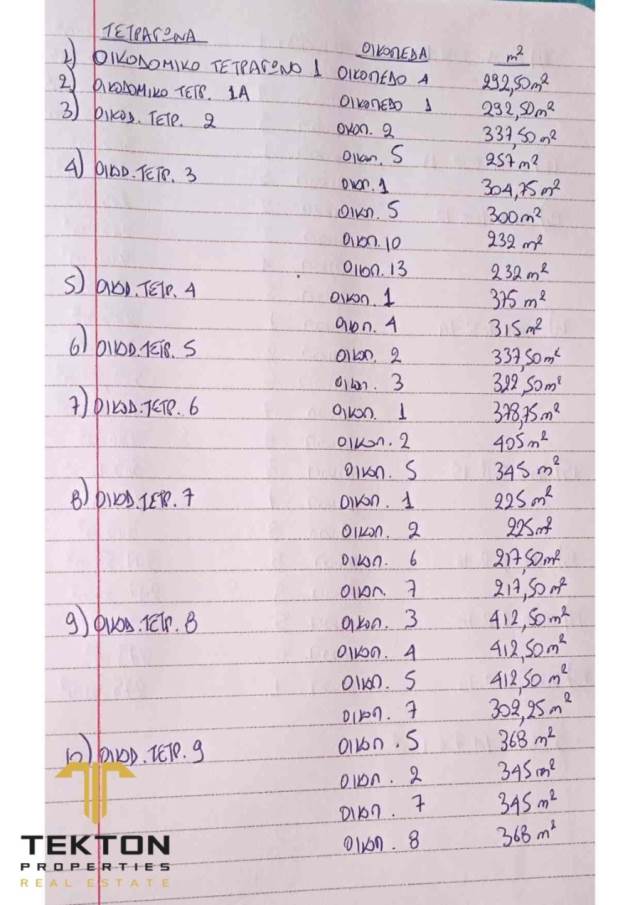 ΤΕΤΡΑΓΩΝΑ ΟΙΚΟΠΕΔΑ m²
1) ΟΙΚΟΔΟΜΙΚΟ ΤΕΤΡΑΓΩΝΟ 1 ΟΙΚΟΠΕΔΟ 4 292,50m²
2) ΟΙΚΟΔΟΜΙΚΟ ΤΕΤΡ. 1Α ΟΙΚΟΠΕΔΟ 1 292,50m²
3) ΟΙΚΟΔ. ΤΕΤΡ. 2 ΟΙΚΟΠ. 2 337,50m²
ΟΙΚΟΠ. 5 257m²
4) ΟΙΚΟΔ. ΤΕΤΡ. 3 ΟΙΚΟΠ. 1 304,75m²
ΟΙΚΟΠ. 5 300m²
ΟΙΚΟΠ. 10 232m²
ΟΙΚΟΠ. 13 232m²
5) ΟΙΚΟΔ. ΤΕΤΡ. 4 ΟΙΚΟΠ. 1 375m²
ΟΙΚΟΠ. 4 315m²
6) ΟΙΚΟΔ. ΤΕΤΡ. 5 ΟΙΚΟΠ. 2 337,50m²
ΟΙΚΟΠ. 3 322,50m²
7) ΟΙΚΟΔ. ΤΕΤΡ. 6 ΟΙΚΟΠ. 1 378,75m²
ΟΙΚΟΠ. 2 405m²
ΟΙΚΟΠ. 5 345m²
8) ΟΙΚΟΔ. ΤΕΤΡ. 7 ΟΙΚΟΠ. 1 225m²
ΟΙΚΟΠ. 2 225m²
ΟΙΚΟΠ. 6 217,50m²
ΟΙΚΟΠ. 7 217,50m²
9) ΟΙΚΟΔ. ΤΕΤΡ. 8 ΟΙΚΟΠ. 3 412,50m²
ΟΙΚΟΠ. 4 412,50m²
ΟΙΚΟΠ. 5 412,50m²
ΟΙΚΟΠ. 7 302,25m²
10) ΟΙΚΟΔ. ΤΕΤΡ. 9 ΟΙΚΟΠ. 5 368m²
ΟΙΚΟΠ. 2 345m²
ΟΙΚΟΠ. 7 345m²
ΟΙΚΟΠ. 8 368m²
TEKTON
PROPERTIES
REAL ESTATE